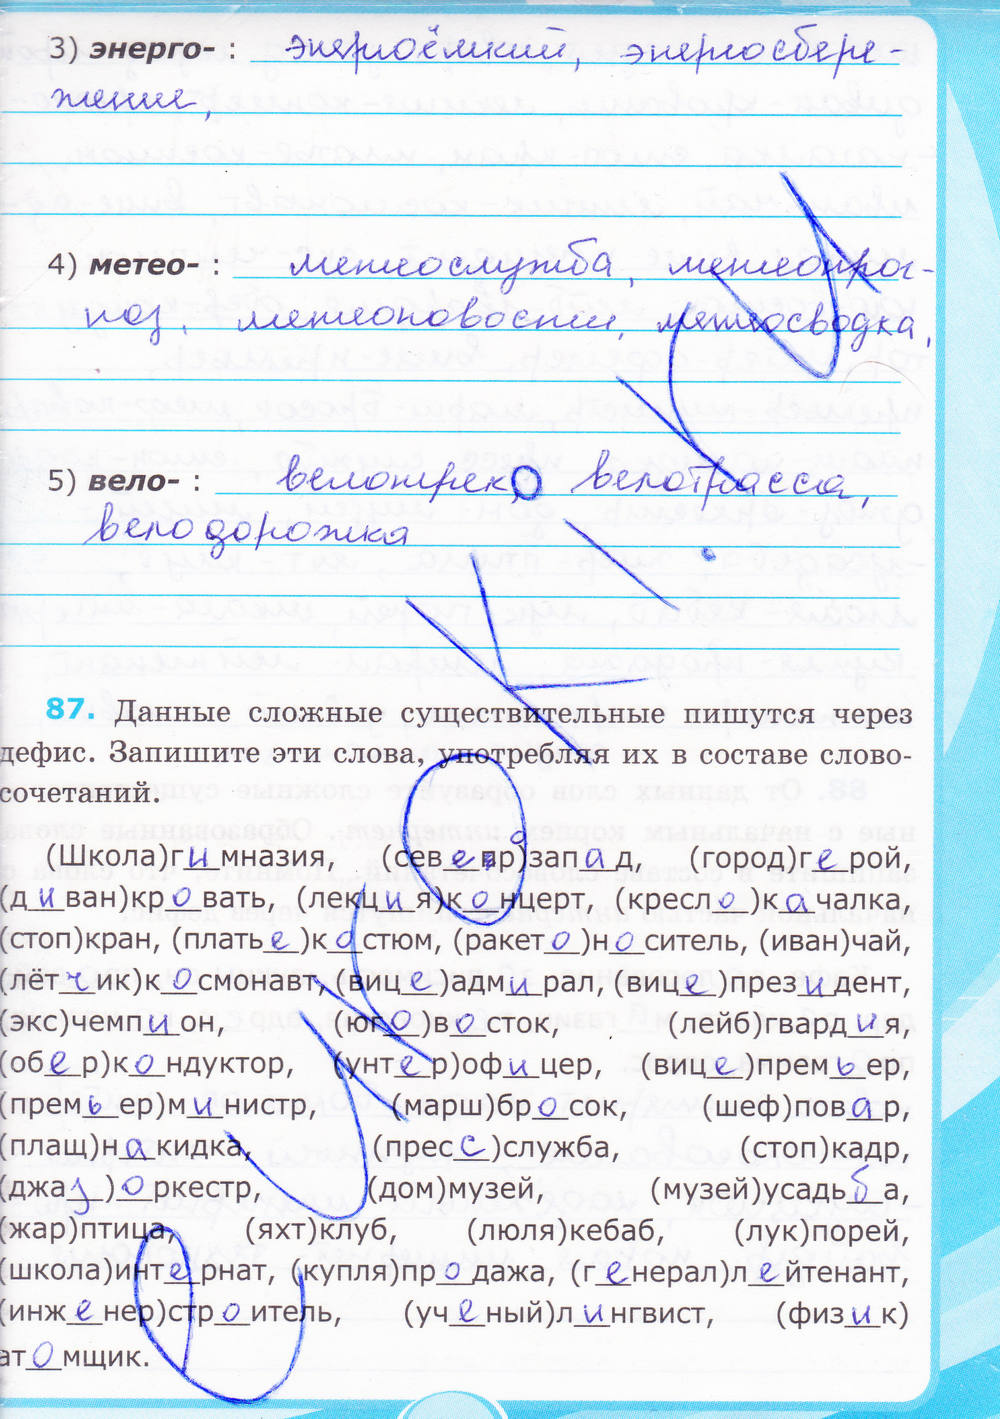 3) энерго- : энергоёмкий, энергосбере-
жение,
4) метео- : метеослужба, метеопрог-
ноз, метеоновости, метеосводка,
5) вело- : велотрек, велотрасса,
велодорожка
87. Данные сложные существительные пишутся через
дефис. Запишите эти слова, употребляя их в составе слово-
сочетаний.
(Школа)гимназия, (северо)запад, (город)герой,
(диван)кровать, (лекция)концерт, (кресло)качалка,
(стоп)кран, (платье)костюм, (ракето)носитель, (иван)чай,
(лётчик)космонавт, (вице)адмирал, (вице)президент,
(экс)чемпион, (юго)восток, (лейб)гвардия,
(обер)кондуктор, (унтер)офицер, (вице)премьер,
(премьер)министр, (марш)бросок, (шеф)повар,
(плащ)накидка, (пресс)служба, (стоп)кадр,
(джаз)оркестр, (дом)музей, (музей)усадьба,
(жар)птица, (яхт)клуб, (люля)кебаб, (лук)порей,
(школа)интернат, (купля)продажа, (генерал)лейтенант,
(инженер)строитель, (учёный)лингвист, (физик)
атомщик.